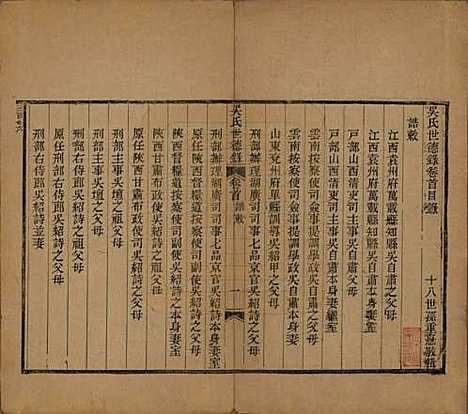 吳氏世德錄卷首目錄
十八世孫重憙敬輯
誥敕
江西袁州府萬載縣知縣吳自肅之父母
江西袁州府萬載縣知縣吳自肅本身妻室
戶部山西清吏司主事吳自肅之父母
戶部山西清吏司主事吳自肅本身妻室
雲南按察使司僉事提調學政吳自肅之父母
雲南按察使司僉事提調學政吳自肅本身妻繼室
山東兗州府單縣訓導吳紹甲之父母
刑部辦理湖廣司司事七品京官吳紹詩之父母
吳氏世德錄 卷首 誥敕 一
刑部辦理湖廣司司事七品京官吳紹詩本身妻室
陝西督糧道按察使司副使吳紹詩之父母
陝西督糧道按察使司副使吳紹詩本身妻室
原任陝西甘肅布政使吳紹詩之祖父母
原任陝西甘肅布政使吳紹詩之父母
刑部主事吳壇之祖父母
刑部主事吳壇之父母
刑部右侍郎吳紹詩之父母
刑部右侍郎吳紹詩並妻